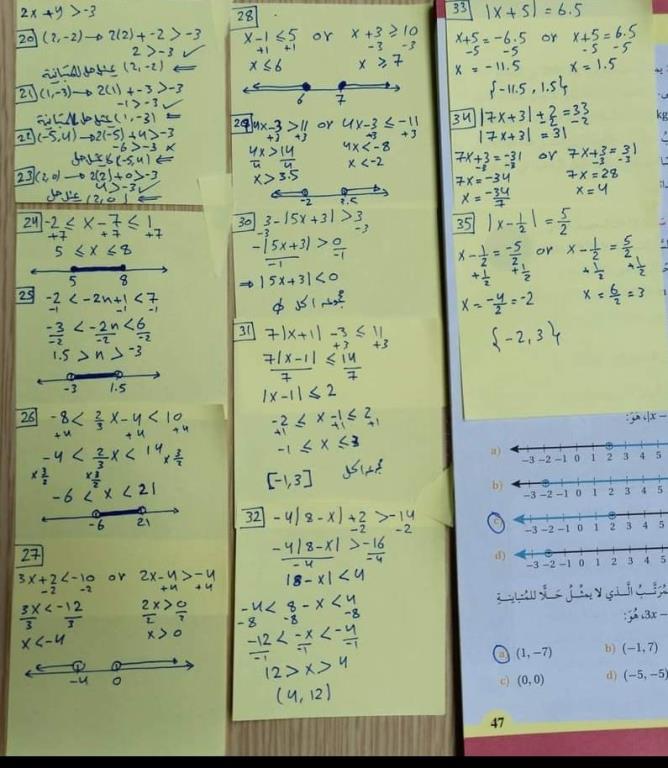 2x + y > -3
20 (2,-2) → 2(2) + -2 > -3
2 > -3 ✓
(2,-2) ⇐
21 (1,-3) → 2(1) + -3 > -3
-1 > -3 ✓
(1,-3) ⇐
22 (-5,4) → 2(-5) + 4 > -3
-6 > -3 ×
(-5,4) ⇐
23 (2,0) → 2(2) + 0 > -3
4 > -3 ✓
(2,0) ⇐
24 -2 ≤ x - 7 ≤ 1
+7 +7 +7
5 ≤ x ≤ 8
5 8
25 -2 < -2n+1 < 7
-1 -1 -1
-3/-2 < -2n/-2 < 6/-2
1.5 > n > -3
-3 1.5
26 -8 < 2/3 x - 4 < 10
+4 +4 +4
-4 < 2/3 x < 14
×3/2 ×3/2 ×3/2
-6 < x < 21
-6 21
27
3x+2 < -10 or 2x-4 > -4
-2 -2 +4 +4
3x/3 < -12/3 2x/2 > 0/2
x < -4 x > 0
-4 0
28
x-1 ≤ 5 or x+3 ≥ 10
+1 +1 -3 -3
x ≤ 6 x ≥ 7
6 7
29 4x-3 > 11 or 4x-3 ≤ -11
+3 +3 +3 +3
4x/4 > 14/4 4x < -8
x > 3.5 x < -2
-2 3.5
30 3 - |5x+3| > 3
-3 -3
-|5x+3|/-1 > 0/-1
⇒ |5x+3| < 0
مجموعة الحل ϕ
31 7|x+1| - 3 ≤ 11
+3 +3
7|x-1|/7 ≤ 14/7
|x-1| ≤ 2
-2 ≤ x-1 ≤ 2
+1 +1 +1
-1 ≤ x ≤ 3
[-1,3] مجموعة الحل
32 -4|8-x| + 2 > -14
-2 -2
-4|8-x|/-4 > -16/-4
|8-x| < 4
-4 < 8-x < 4
-8 -8 -8
-12/-1 < -x/-1 < -4/-1
12 > x > 4
(4,12)
33 |x+5| = 6.5
x+5 = -6.5 or x+5 = 6.5
-5 -5 -5 -5
x = -11.5 x = 1.5
{-11.5, 1.5}
34 |7x+3| + 2 = 33
-2 -2
|7x+3| = 31
7x+3 = -31 or 7x+3 = 31
-3 -3 -3 -3
7x = -34 7x = 28
x = -34/7 x = 4
35 |x - 1/2| = 5/2
x - 1/2 = -5/2 or x - 1/2 = 5/2
+1/2 +1/2 +1/2 +1/2
x = -4/2 = -2 x = 6/2 = 3
{-2, 3}
هو:
a) -3 -2 -1 0 1 2 3 4 5
b) -3 -2 -1 0 1 2 3 4 5
c) -3 -2 -1 0 1 2 3 4 5
d) -3 -2 -1 0 1 2 3 4 5
مُرتَّبُ الَّذي لا يمثِّلُ حَلًّا للمُتباينةِ
3x-، هُوَ:
a) (1, -7) b) (-1, 7)
c) (0, 0) d) (-5, -5)
47